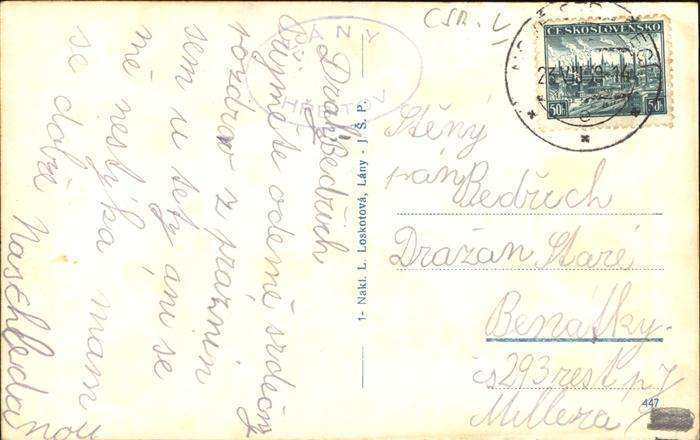 LÁNY
ČSR. V/
ČESKOSLOVENSKO
50h 50h
Drahý Bedřich
Přijměte odemě srdečný
pozdrav z prázdnin
sem u tety áni se
mě nestýká mám
se dobře
Naschledanou
1- Nakl. L. Loskotová, Lány - J. Š. P.
Stěný
pán Bedřich
Dražan Staré
Benátky
čs 293 rest p
Millera
447